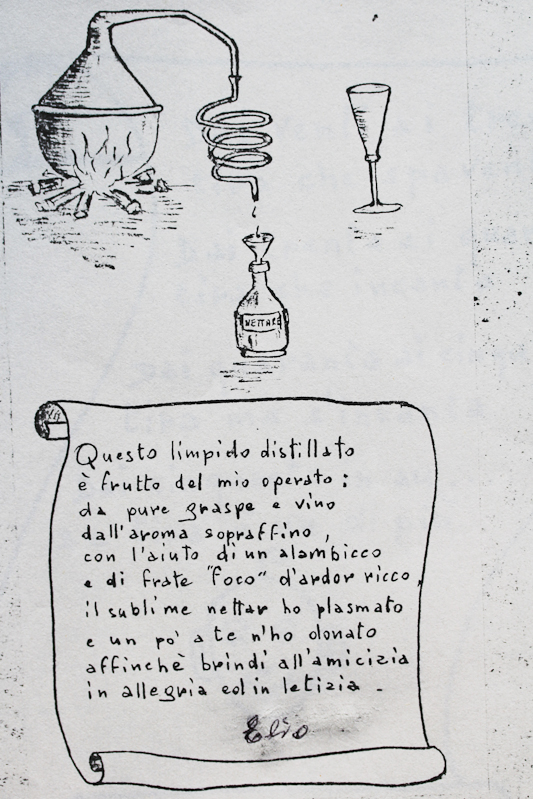 NETTARE
Questo limpido distillato
è frutto del mio operato:
da pure graspe e vino
dall'aroma sopraffino,
con l'aiuto di un alambicco
e di frate "foco" d'ardor ricco,
il sublime nettar ho plasmato
e un po' a te n'ho donato
affinchè brindi all'amicizia
in allegria ed in letizia.
Elio